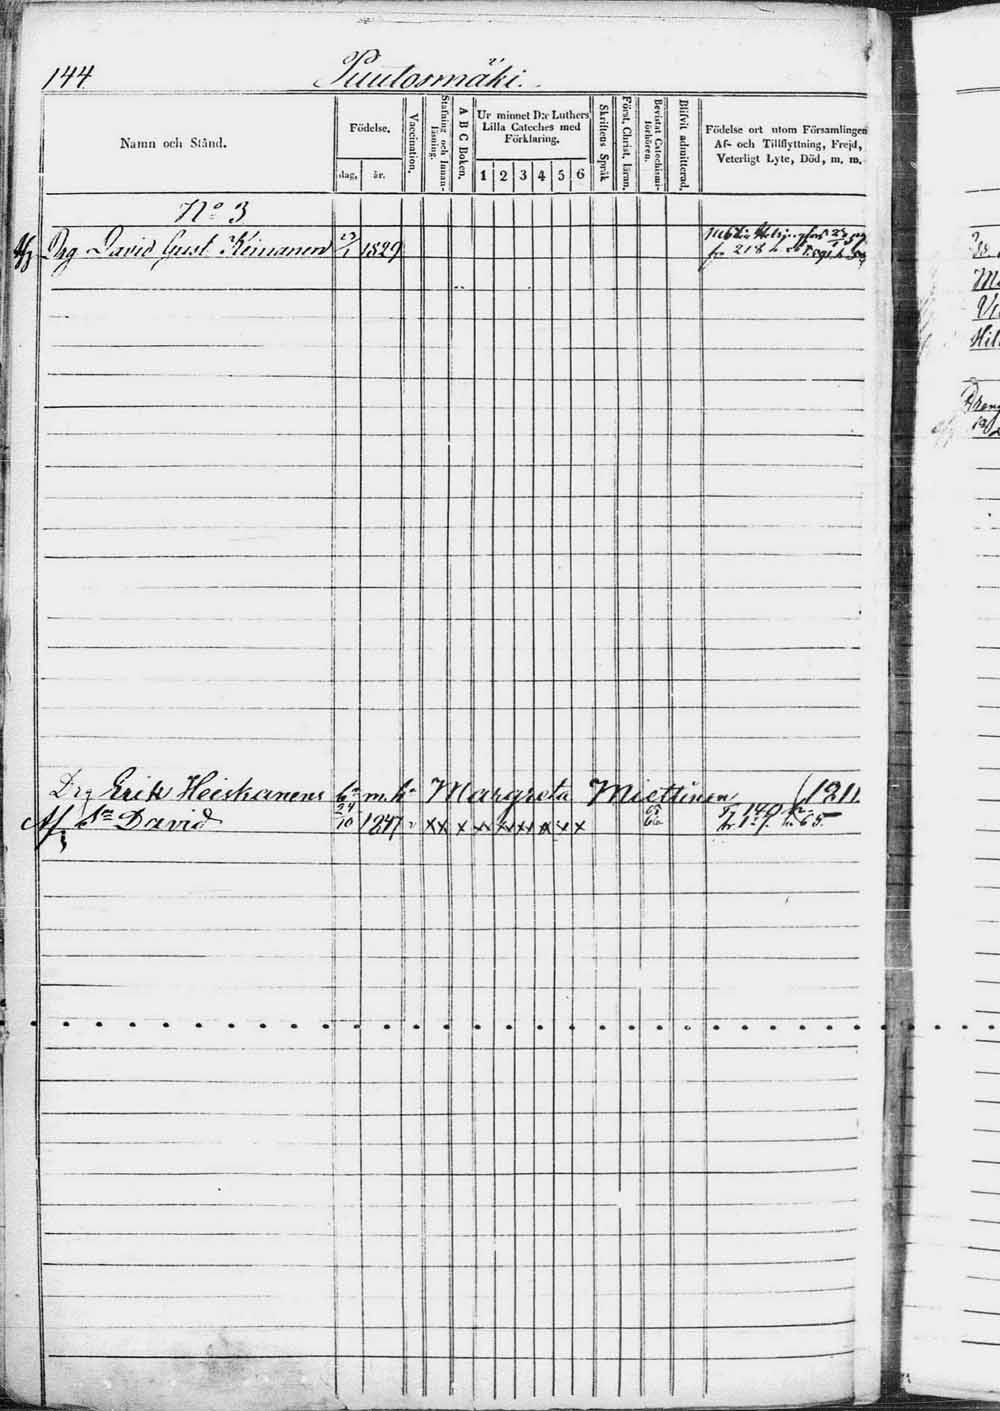 144
Puutosmäki.
Namn och Stånd.
Födelse.
dag.
år.
Vaccination.
Stafning och Innanläsning.
A B C Boken.
Ur minnet D:r Luthers
Lilla Cateches med
Förklaring.
1 2 3 4 5 6
Skriftens Språk
Först. Christ. läran.
Bevistat Catechismiförhören.
Blifvit admitterad.
Födelse ort utom Församlingen
Af- och Tillflyttning, Frejd,
Veterligt Lyte, Död, m. m.
No 3
Drg David Gust. Keinanen 1829
fr 218
Drg Erik Heiskanens m. h. Margreta Miettinen (1211.
Sn David 24/10 1847 x x x x x x x x x 65 66 149. 65.